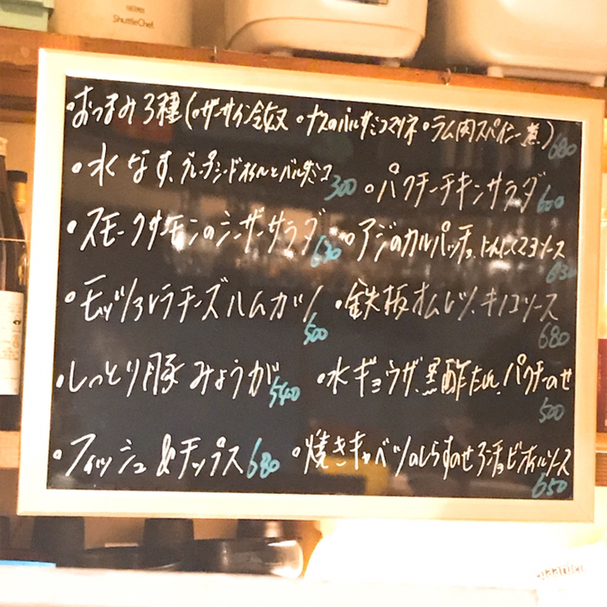 ShuttleChef
・おつまみ3種(・ザーサイ冷奴 ・ナスのバルサミコマリネ ・ラム肉スペイン煮) 680
・水なす、グレープシードオイルとバルサミコ 300 ・パクチーチキンサラダ 600
・スモークサーモンのシーザーサラダ 630 ・アジのカルパッチョ、にんにくマヨソース
・モッツァレラチーズハムカツ 500 ・鉄板オムレツ、キノコソース 680
・しっとり豚みょうが ・水ギョウザ、黒酢たれ、パクチーのせ 500
・フィッシュ&チップス 680 ・焼きキャベツのしらすのせ ソース 650